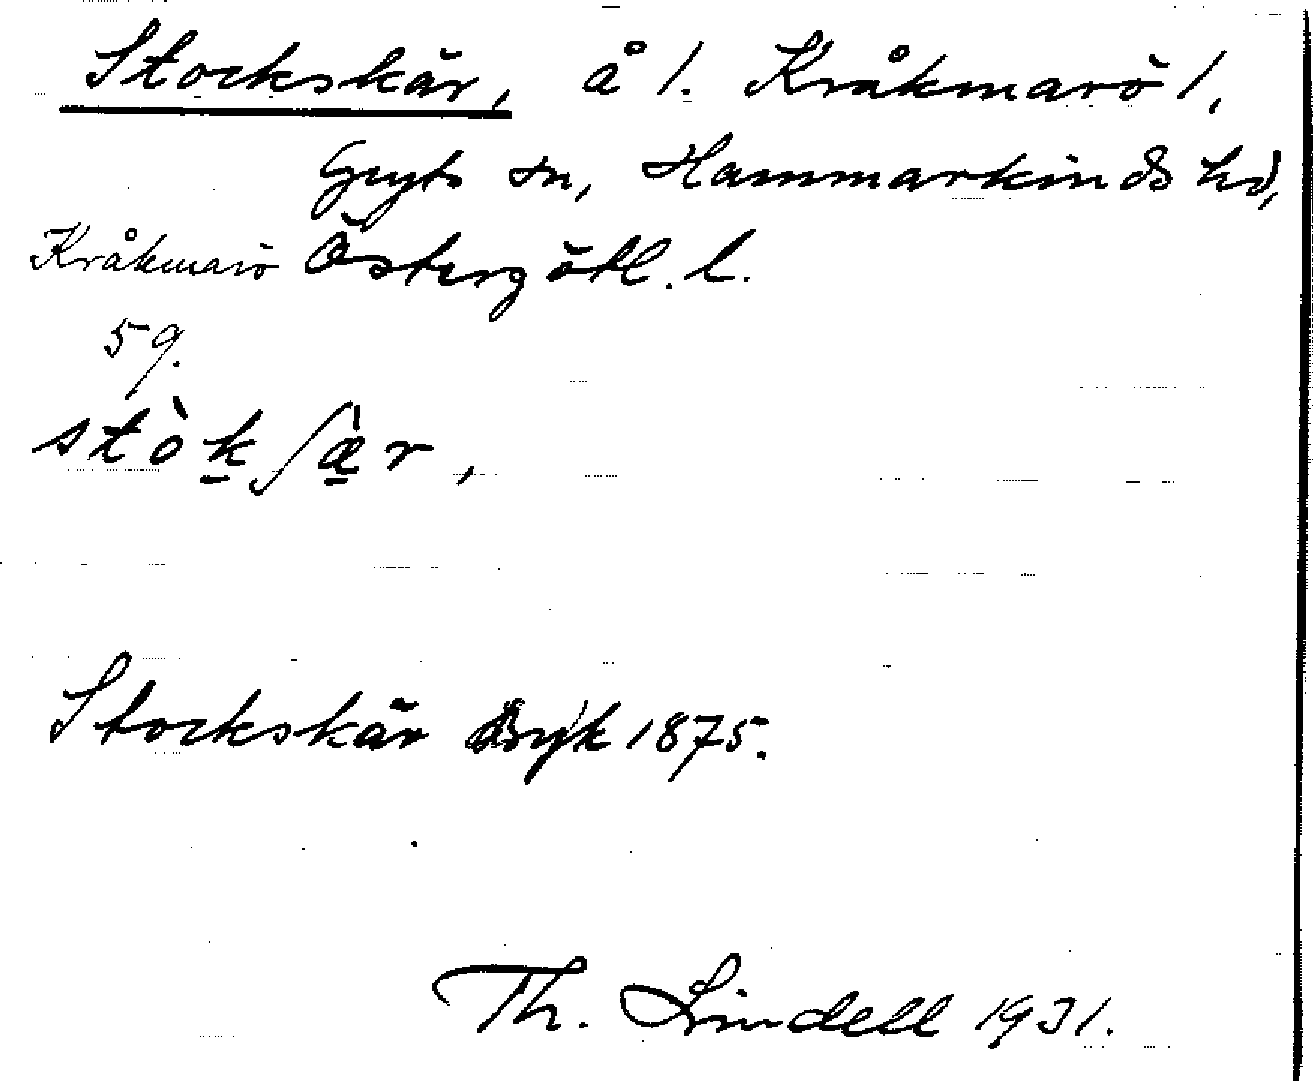 Stockskär, å /. Kråkmarö /,
Gryts sn, Hammarkinds hd,
Kråkmarö Östergötl. l.
59.
stòk̠ʃæ̠̀r,
Stockskär Dsyk 1875.
Th. Lindell 1931.